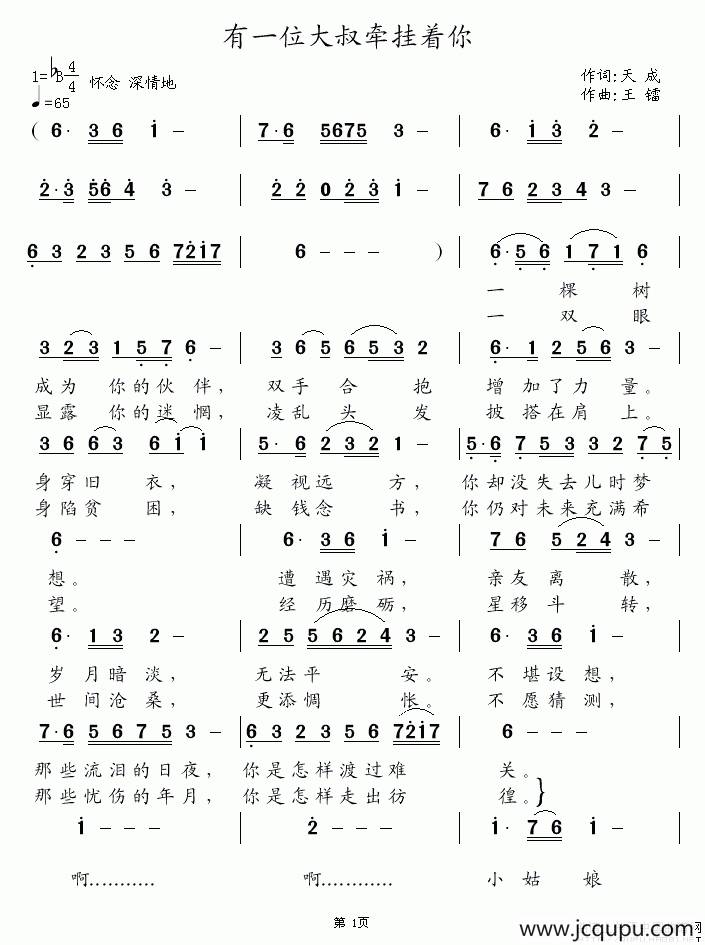 有一位大叔牵挂着你
1=♭B 4/4 怀念 深情地 作词:天 成
♩=65 作曲:王 镭
( 6· 3 6 i - | 7·6 5675 3 - | 6· i 3 2 - |
2·3 56 4 3 - | 2 2 0 2 3 i - | 7 6 2 3 4 3 - |
6 3 2 3 5 6 72i7 | 6 - - - ) | 6·5 6 1 7 1 6 |
一 棵 树
一 双 眼
3 2 3 1 5 7 6 - | 3 6 5 6 5 3 2 | 6· 1 2 5 6 3 - |
成为 你的伙 伴, 双手 合 抱 增 加了力 量。
显露 你的迷 惘, 凌乱 头 发 披 搭在肩 上。
3 6 6 3 6 i i | 5· 6 2 3 2 1 | 5·6 7 5 3 3 2 7 5 |
身穿旧 衣, 凝 视远 方, 你却没失去儿时梦
身陷贫 困, 缺 钱念 书, 你仍对未来充满希
6 - - - | 6· 3 6 i - | 7 6 5 2 4 3 - |
想。 遭 遇灾 祸, 亲友 离 散,
望。 经 历磨 砺, 星移 斗 转,
6· 1 3 2 - | 2 5 5 6 2 4 - | 6· 3 6 i - |
岁 月暗 淡, 无法平 安。 不 堪设 想,
世 间沧 桑, 更添惆 怅。 不 愿猜 测,
7·6 5 6 7 5 3 - | 6 3 2 3 5 6 7 2i7 | 6 - - |
那些流泪的日夜, 你是怎样渡过难 关。
那些忧伤的年月, 你是怎样走出彷 徨。}
i - - - | 2 - - - | i· 7 6 i - |
啊............ 啊............ 小 姑 娘
第 1页
www.jcqupu.com